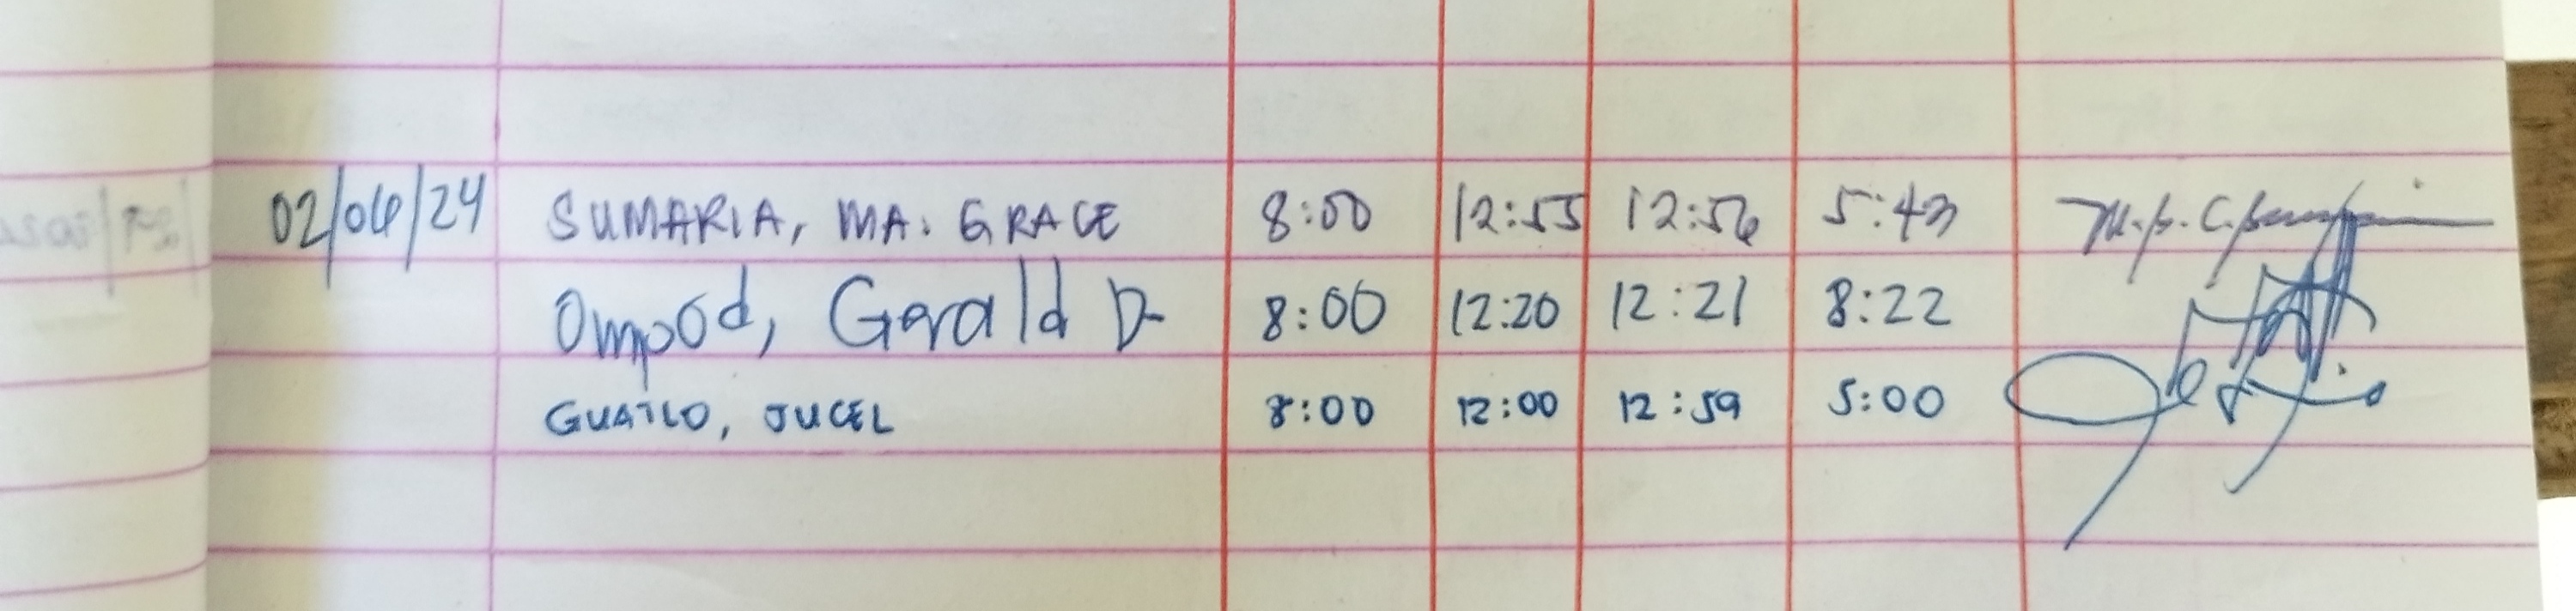 02/06/24 SUMARIA, MA. GRACE 8:00 12:55 12:56 5:43
Ompod, Gerald D. 8:00 12:20 12:21 8:22
GUATLO, JUCEL 8:00 12:00 12:59 5:00